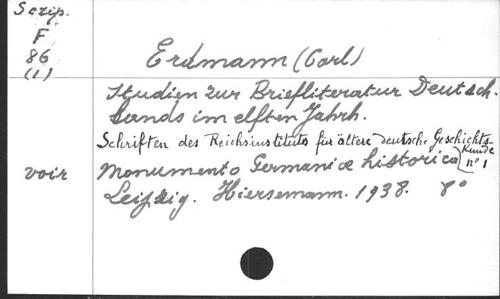 Scrip.
F
86
(1)
Erdmann (Carl)
Studien zur Briefliteratur Deutsch-
lands im elften Jahrh.
Schriften des Reichsinstituts für ältere deutsche Geschichts-
kunde
n° 1
voir Monumenta Germaniæ historica
Leipzig. Hiersemann. 1938. 8°